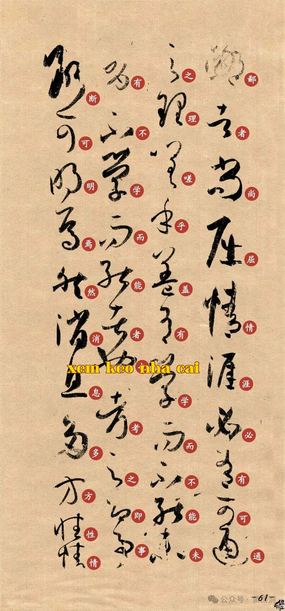 鄙者尚屈情涯必有可通
之理嗟乎盖有学而不能未
有不学而能者也考之即事
断可明焉然消息多方性情
xem keo nha cai
公众号
-61-